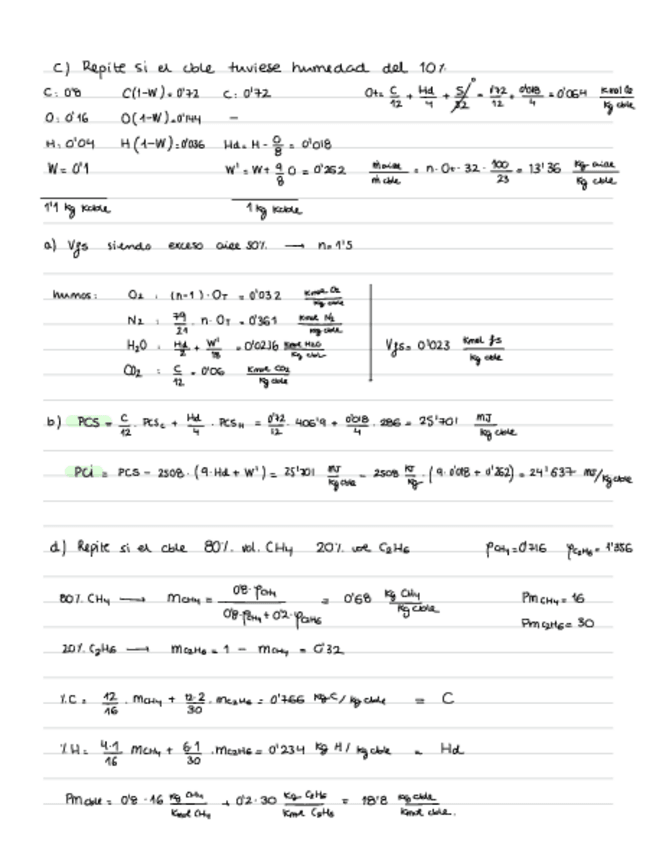 c) Repite si el cble tuviese humedad del 10%
C: 0'8 C(1-W) = 0'72 C: 0'72 Ot = C/12 + Hd/4 + S/32 = 0'72/12 + 0'018/4 = 0'064 Kmol O2/kg cble
O: 0'16 O(1-W) = 0'144 -
H: 0'04 H(1-W) = 0'036 Hd = H - O/8 = 0'018
W = 0'1 W' = W + 9/8 O = 0'262 ṁaire/ṁcble = n · Ot · 32 · 100/23 = 13'36 kg aire/kg cble
1'1 kg Kcble 1 kg Kcble
a) Vgs siendo exceso aire 50% → n = 1'5
humos: O2 : (n-1) · OT = 0'032 Kmol O2/kg cble
N2 : 79/21 · n · OT = 0'361 Kmol N2/kg cble
H2O : Hd/2 + W'/18 = 0'0236 Kmol H2O/kg cble Vgs = 0'023 Kmol gs/kg cble
CO2 : C/12 = 0'06 Kmol CO2/kg cble
b) PCS = C/12 · PCSc + Hd/4 · PCSH = 0'72/12 · 406'9 + 0'018/4 · 286 = 25'701 MJ/kg cble
PCi = PCS - 2508 · (9 · Hd + W') = 25'701 MJ/kg cble - 2508 KJ/kg · (9 · 0'018 + 0'262) = 24'637 MJ/kg cble
d) Repite si el cble 80% vol. CH4 20% vol C2H6 ρCH4 = 0'716 ρC2H6 = 1'356
80% CH4 → mCH4 = 0'8 · ρCH4/(0'8 · ρCH4 + 0'2 · ρC2H6) = 0'68 kg CH4/kg cble PmCH4 = 16
PmC2H6 = 30
20% C2H6 → mC2H6 = 1 - mCH4 = 0'32
%C = 12/16 · mCH4 + 12·2/30 · mC2H6 = 0'766 kg C/kg cble = C
%H = 4·1/16 mCH4 + 6·1/30 · mC2H6 = 0'234 kg H/kg cble = Hd
Pmcble = 0'8 · 16 kg CH4/Kmol CH4 + 0'2 · 30 kg C2H6/Kmol C2H6 = 18'8 kg cble/Kmol cble.